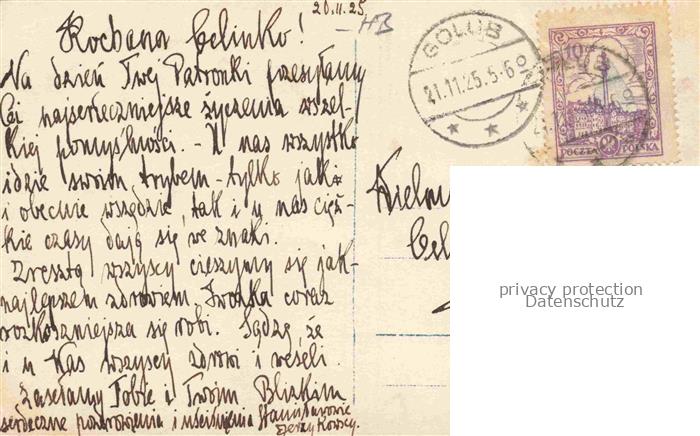 20.11.25.
Kochana Celinko!
Na dzień Twej Patronki przesyłamy
Ci najserdeczniejsze życzenia wszel-
kiej pomyślności. - U nas wszystko
idzie swoim trybem - tylko jak
i obecnie wszędzie, tak i u nas cięż-
kie czasy dają się we znaki.
Zresztą wszyscy cieszymy się jak-
najlepszem zdrowiem. Iwonka coraz
rozkoszniejsza się robi. Sądzę, że
i u Was wszyscy zdrowi i weseli.
Zasełamy Tobie i Twoim Blizkim
serdeczne pozdrowienia i uściśnienia Stanisławowie
HB
GOLUB
21.11.25.5-6
POCZTA POLSKA
privacy protection
Datenschutz